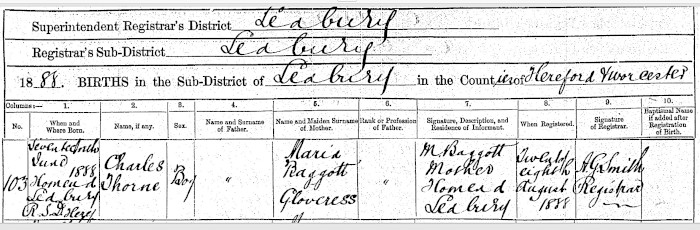 Superintendent Registrar's District Ledbury
Registrar's Sub-District Ledbury
1888. BIRTHS in the Sub-District of Ledbury in the Counties of Hereford & Worcester
Columns:— 1. 2. 3. 4. 5. 6. 7. 8. 9. 10.
No. When and Where Born. Name, if any. Sex. Name and Surname of Father. Name and Maiden Surname of Mother. Rank or Profession of Father. Signature, Description, and Residence of Informant. When Registered. Signature of Registrar. Baptismal Name if added after Registration of Birth.
103 Seventeenth June 1888 Homend Ledbury R.S.D. Charles Thorne Boy " Maria Baggott Gloveress " M Baggott Mother Homend Ledbury Twenty eighth August 1888 A G Smith Registrar